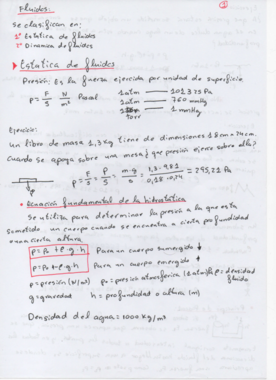 Fluidos:
①
Se clasifican en:
1º Estática de fluidos
2º Dinámica de fluidos
Estática de fluidos
Presión: Es la fuerza ejercida por unidad de superficie
P = F/S N/m² Pascal
1 atm — 101325 Pa
1 atm — 760 mmHg
1 Torr — 1 mmHg
Ejercicio:
Un libro de masa 1,3 Kg tiene de dimensiones 18 cm x 24 cm.
Cuando se apoya sobre una mesa ¿que presión ejerce sobre ella?
P = F/S = P/S = m·g/S = 1,3·9,81/0,18·0,24 = 295,21 Pa
Ecuación fundamental de la hidrostática
Se utiliza para determinar la presión a la que esta
sometido un cuerpo cuando se encuentra a cierta profundidad
o una cierta altura
P = P₀ + ρ·g·h Para un cuerpo sumergido ↓
P = P₀ + ρ·g·h Para un cuerpo emergido ↑
P = presión (N/m²) P₀ = presión atmosférica (1 atm) ρ = densidad fluido
g = gravedad h = profundidad o altura (m)
Densidad del agua = 1000 Kg/m³